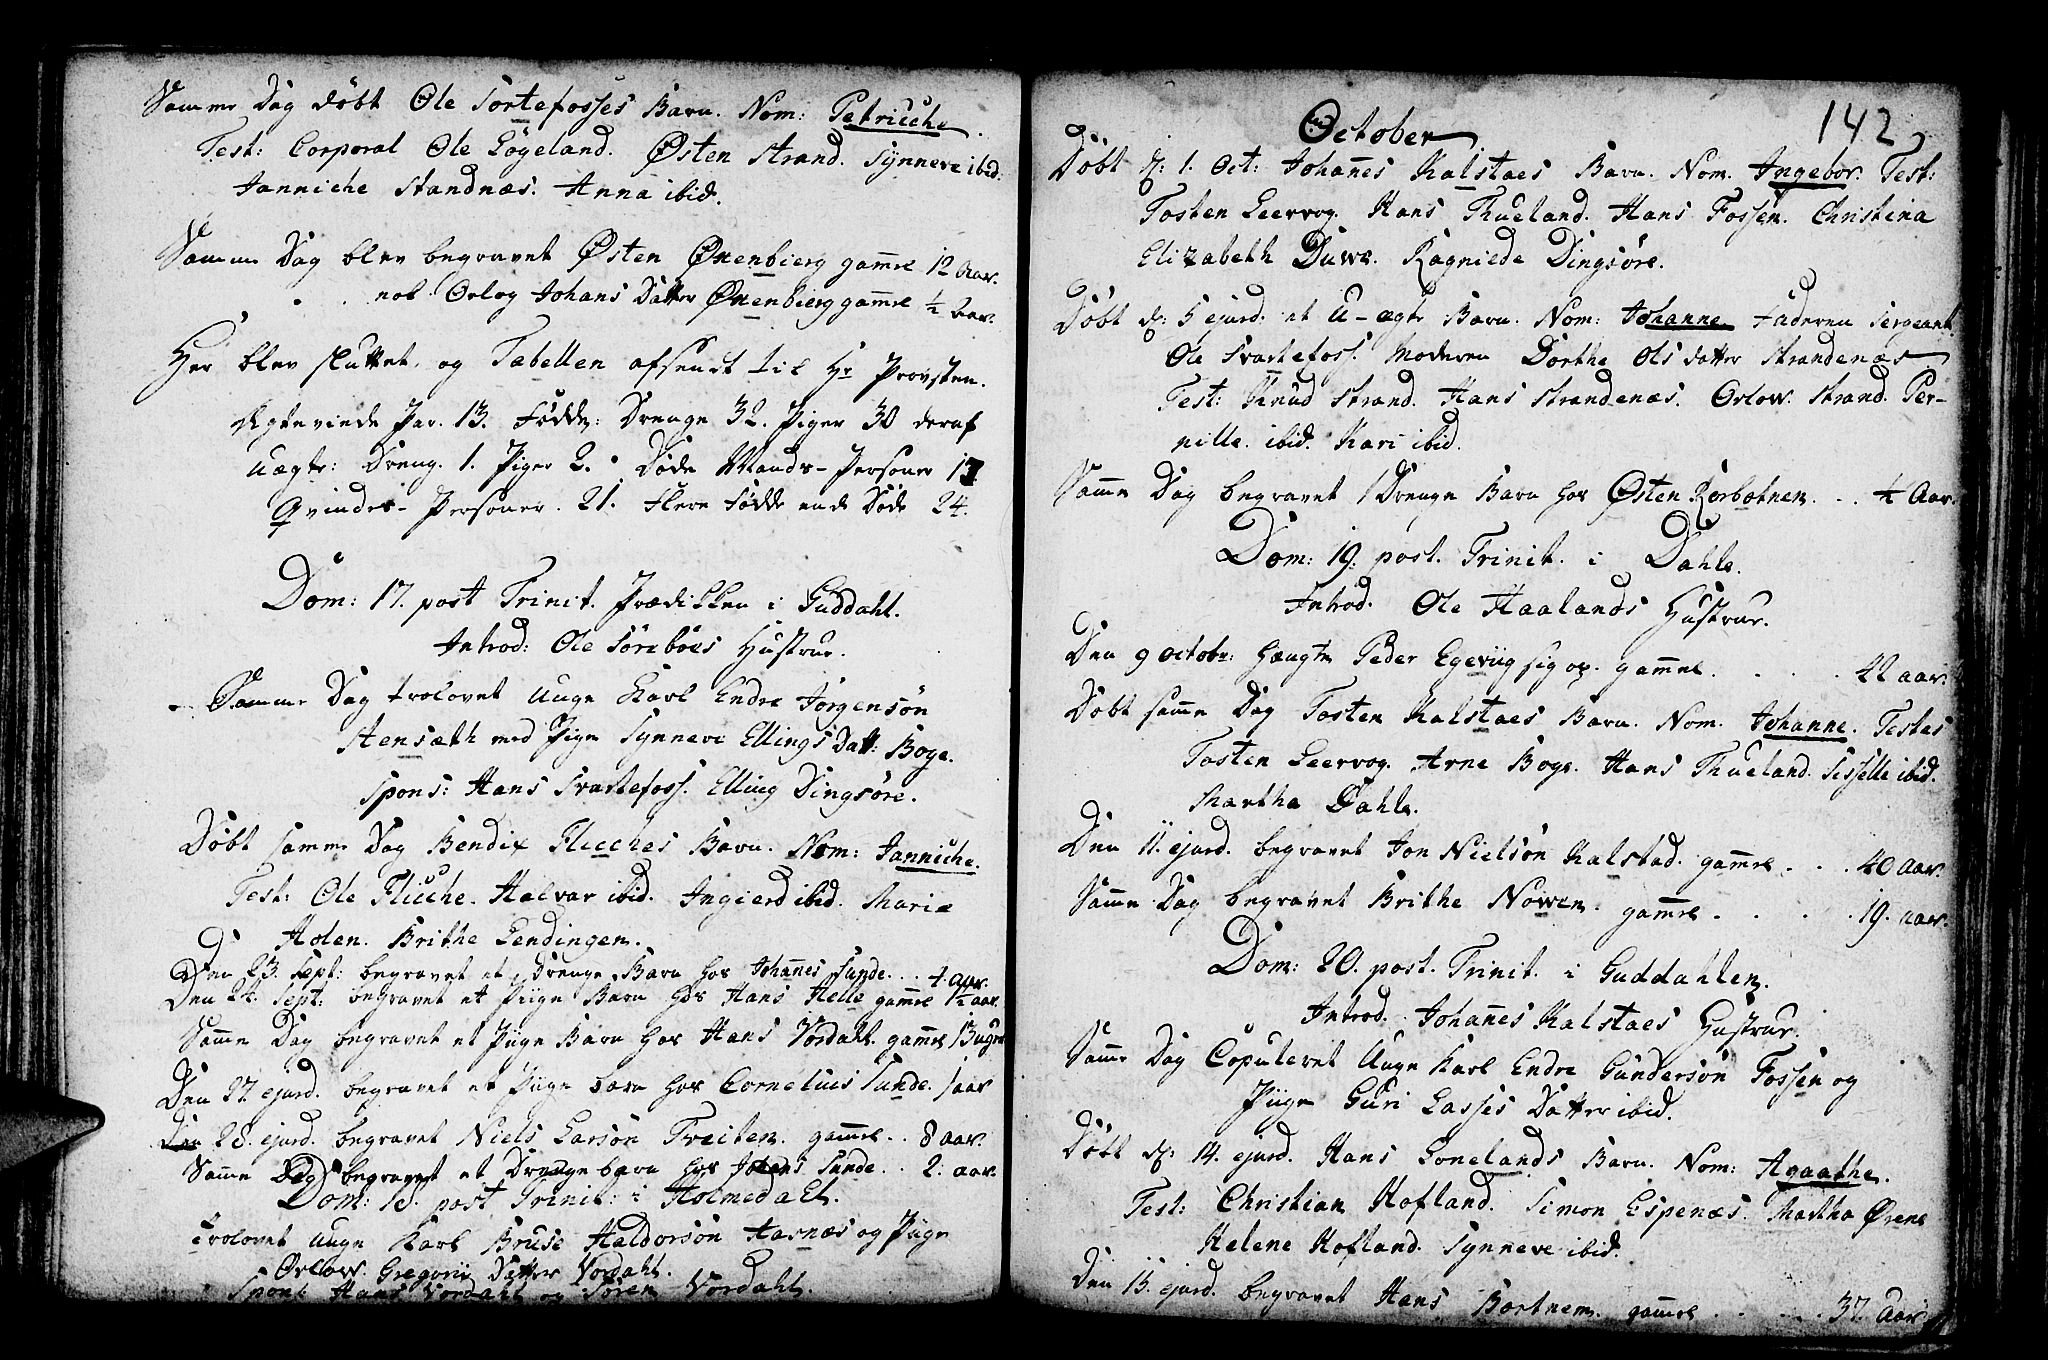 Samme Dag døbt Ole Sortefosses Barn. Nom: Petricche.
Test: Corporal Ole Løgeland. Østen Strand. Synneve ibid:
Janniche Standnæs. Anna ibid.
Samme Dag blev begravet Østen Øxenbierg gamel 12 Aar.
nok Orlog Johans Datter Øxenbierg gamel ½ Aar.
Her blev sluttet, og Tabellen afsendt til Hr Provsten.
Ægteviede Par. 13. Fødde: Drenge 32. Piger 30 deraf
Uægte: Dreng. 1. Piger 2. Døde Mands-Personer 17
Qvindes-Personer. 21. Flere Fødde end Døde 24.
Dom: 17. post Trinit. Prædikken i Guddahl.
Introd: Ole Sørebøes Hustrue.
Samme Dag trolovet Unge Karl Endre Jørgensøn
Stensæth med Pige Synneve Ellings Datt: Boge.
Spons: Hans Svartefoss. Elling Dingsøre.
Døbt samme Dag Bendix Flicches Barn. Nom: Janniche.
Test: Ole Flicche. Halvar ibid. Ingierd ibid. Marie
Holen. Brithe Lendingen.
Den 23. Sept: begravet et Drenge Barn hos Johañes Sunde. . . Aar.
Den 24. Sept: begravet et Piige Barn hos Hans Helle gamel 1½ aar.
Same Dag begravet et Piige Barn hos Hans Vordahl. gamel 13 uger
Den 27 ejusd. begravet et Piige barn hos Cornelius Sunde. 1 aar
Den 28. ejusd. begravet Niels Larsøn Treiten. gamel . . 8 aar.
Same Dag begravet et Drenge barn hos Johans Sunde . . 2. aar.
Dom: 18. post Trinit: i Holmedahl.
Trolovet unge Karl Bruse Haldorsøn Aasnæs og Piige
Orlow Gregorii Datter Vordahl.
Spons: Hans Vordahl og Søren Vordahl.
142
October
Døbt d: 1. Oct: Johañes Kalstaes Barn. Nom. Ingebor. Test:
Tosten Leervog. Hans Thueland. Hans Fossen. Christina
Elizabeth Duwe. Ragniede Dingsøre.
Døbt d: 5 ejusd: et U-ægte Barn. Nom: Johanne. Faderen Sergeant
Ole Svartefoss. Moderen Dorthe Ols datter Strandenæs
Test: Knud Strand. Hans Strandenæs. Orlow. Strand. Per-
nille. ibid. Kari ibid.
Same Dag begravet 1 Drenge Barn hos Østen Rørbotnen. . . ¼ Aar.
Dom: 19. post. Trinit. i Dahle.
Introd. Ole Haalands Hustrue.
Den 9 Octobr: hængte Peder Egeviig sig op. gamel. . . . . 42 aar.
Døbt same Dag Tosten Kalstaes Barn. Nom. Johanne. Testes
Tosten Leervog. Arne Boge. Hans Thueland. Sisselle ibid.
Martha Dahle.
Den 11. ejusd. begravet Jon Nielsøn Kalstad. gamel . . . 40 aar.
Same Dag begravet Brithe Nowen. gamel . . . . 19. aar.
Dom: 20. post. Trinit. i Guddahlen.
Introd. Johañes Kalstaes Hustrue.
Same Dag Copulevet Unge Karl Endre Gundersøn Fossen og
Piige Guri Lasses Datter ibid.
Døbt d: 14. ejusd. Hans Lonelands Barn. Nom: Agaathe.
Test: Christian Hofland. Simon Espenæs. Martha Ørens
Helene Hofland. Synneve ibid.
Den 15. ejusd. begravet Hans Bortnem. gamel . . . . . 37. Aar